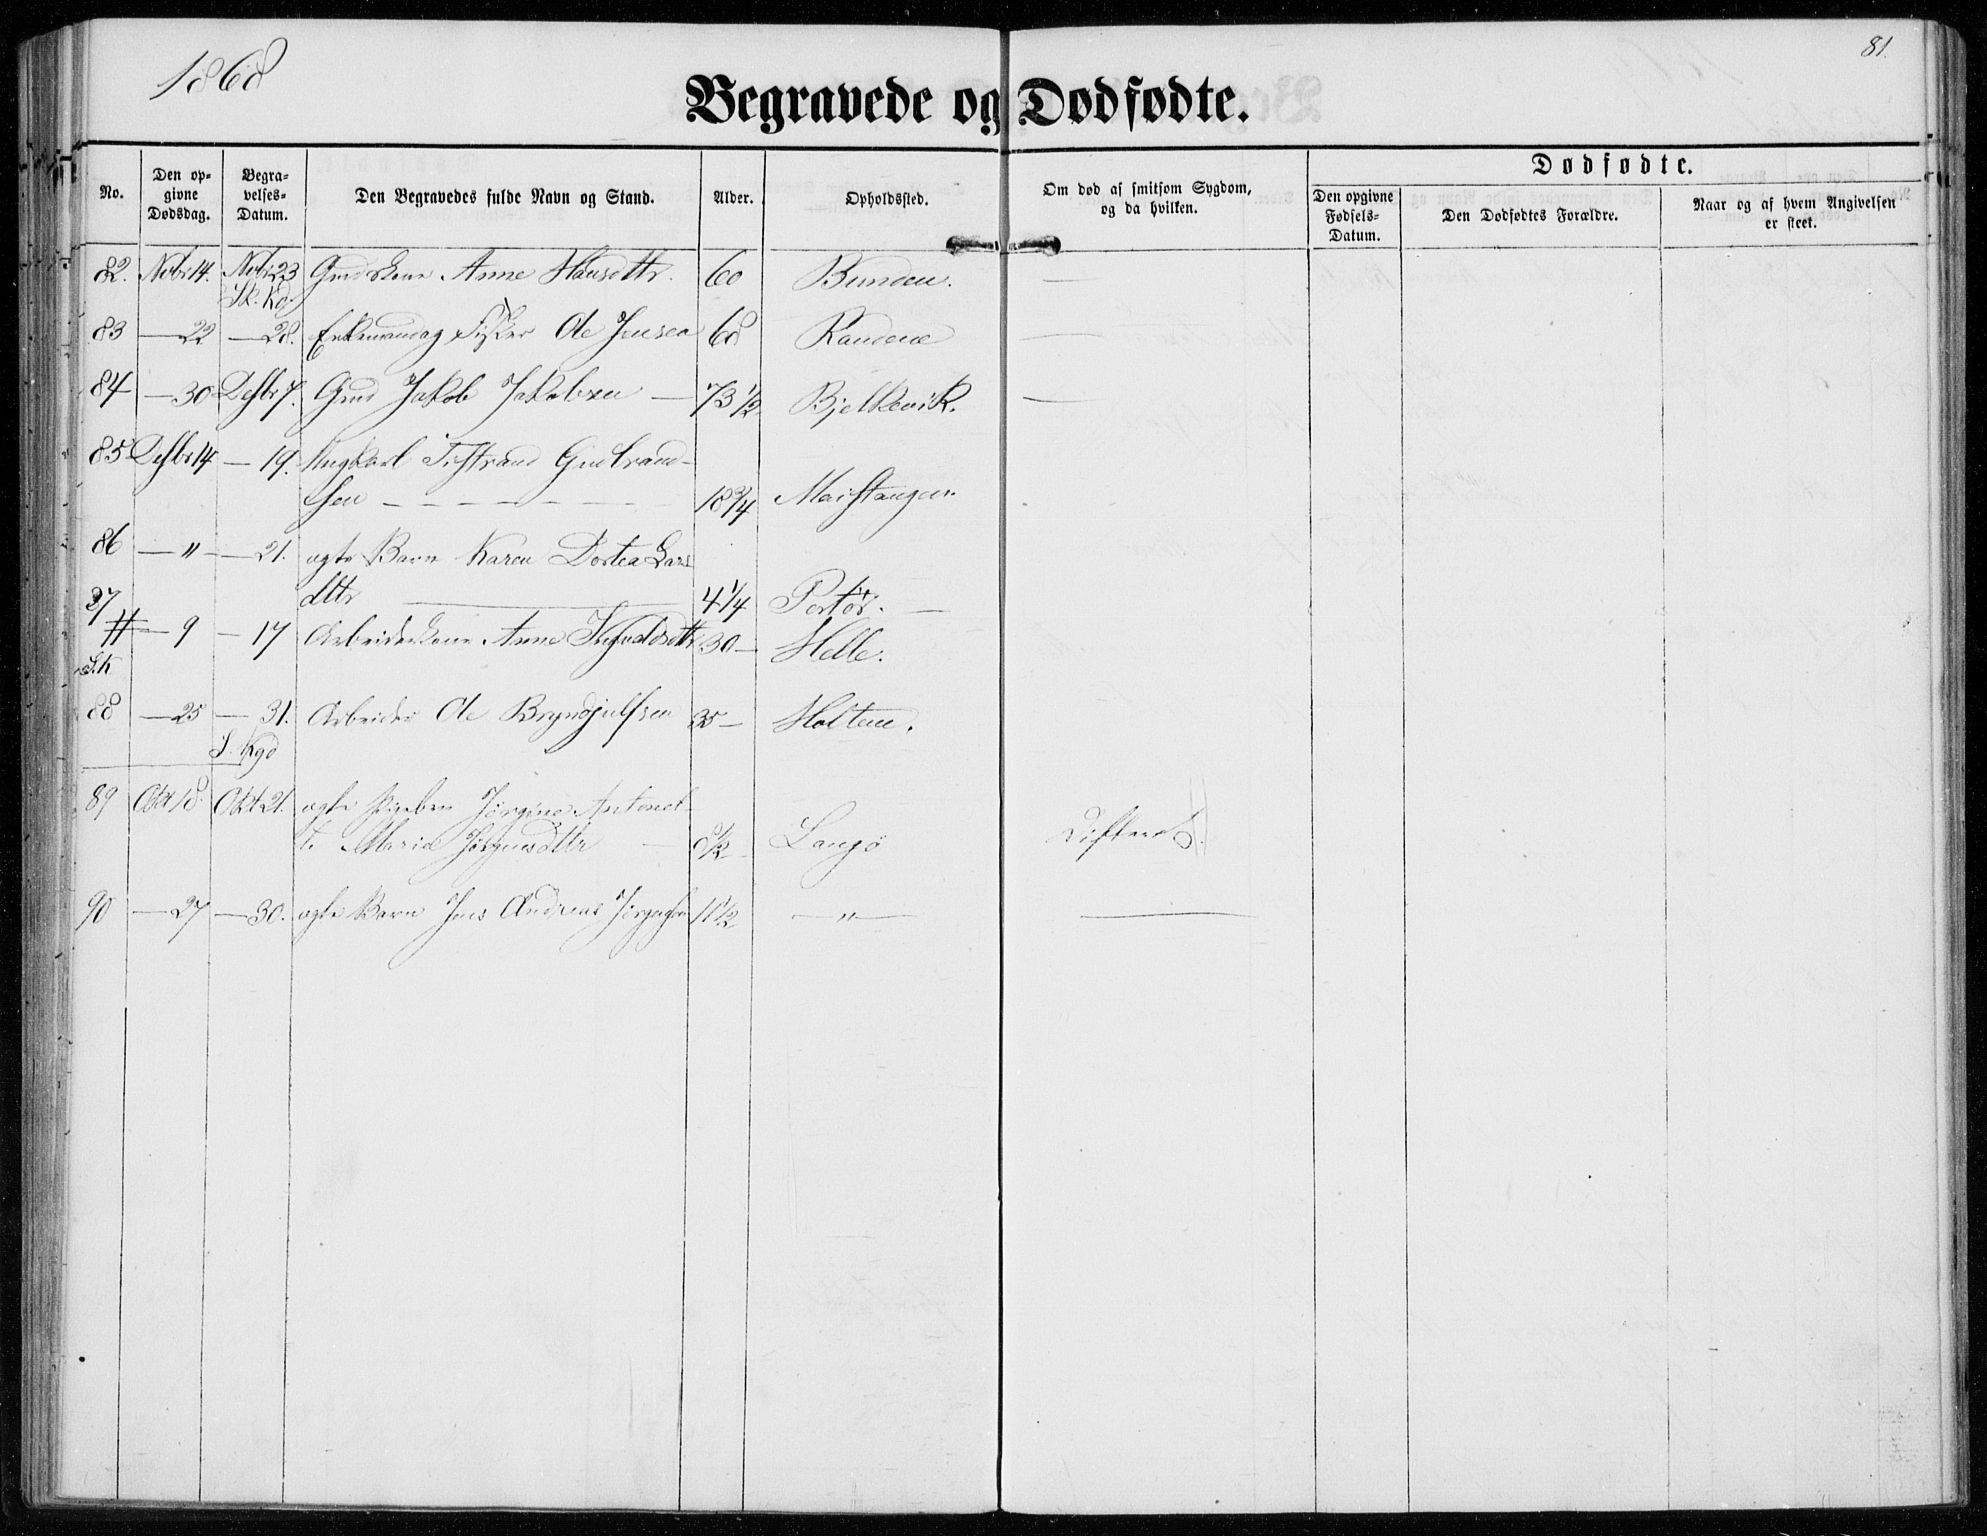 1868
81.
Begravede og Dødfødte.
No.
Den op-
givne
Dødsdag.
Begra-
velses-
Datum.
Den Begravedes fulde Navn og Stand.
Alder.
Opholdssted.
Om død af smitsom Sygdom,
og da hvilken.
Dødfødte.
Den opgivne
Fødsels-
Datum.
Den Dødfødtes Forældre.
Naar og af hvem Angivelsen
er skeet.
82. Novbr 14. Novbr 23 Gmdskone Anne Hansdttr. 60 Bunden. —
Sk. Kd.
83 — 22 — 28. Enkemand og Fisker Ole Jensen 68 Kandene —
84 — 30 Decbr 7. Gmd Jakob Jakobsen — 73 1/2 Bjelkevik. —
85 Decbr 14 — 19. Ungkarl Tistrand Gudbrand-
sen — — — — — — 18 3/4 Marstangen.
86 — " — 21. ægte Barn Karen Dortea Lars
dttr — 4 1/4 Portör. —
87
— 9 — 17 Arbeiderkone Anne Ingvaldsdttr 30 — Helle.
S.K
88 — 25 — 31. Arbeider Ole Bryndjulfsen 35 — Holtene.
S. Kgd
89 Okt 18. Okt 21. ægte Pigebn Jörgine Antonet-
te Marie Jörgensdttr — 8 1/2 Langö
90 — 27 — 30. ægte Barn Jens Andreas Jörgensen 11 1/2 — " — —